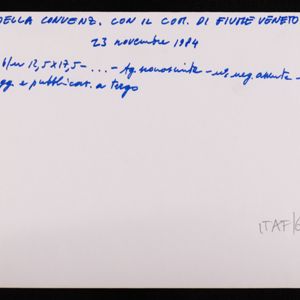 DELLA CONVENZ. CON IL COM. DI FIUME VENETO
23 novembre 1984
6/nn 12,5x17,5 - ... - Ag. sconosciuta - neg. assunta -
gg. e pubblicaz. a tergo
ITAF/6